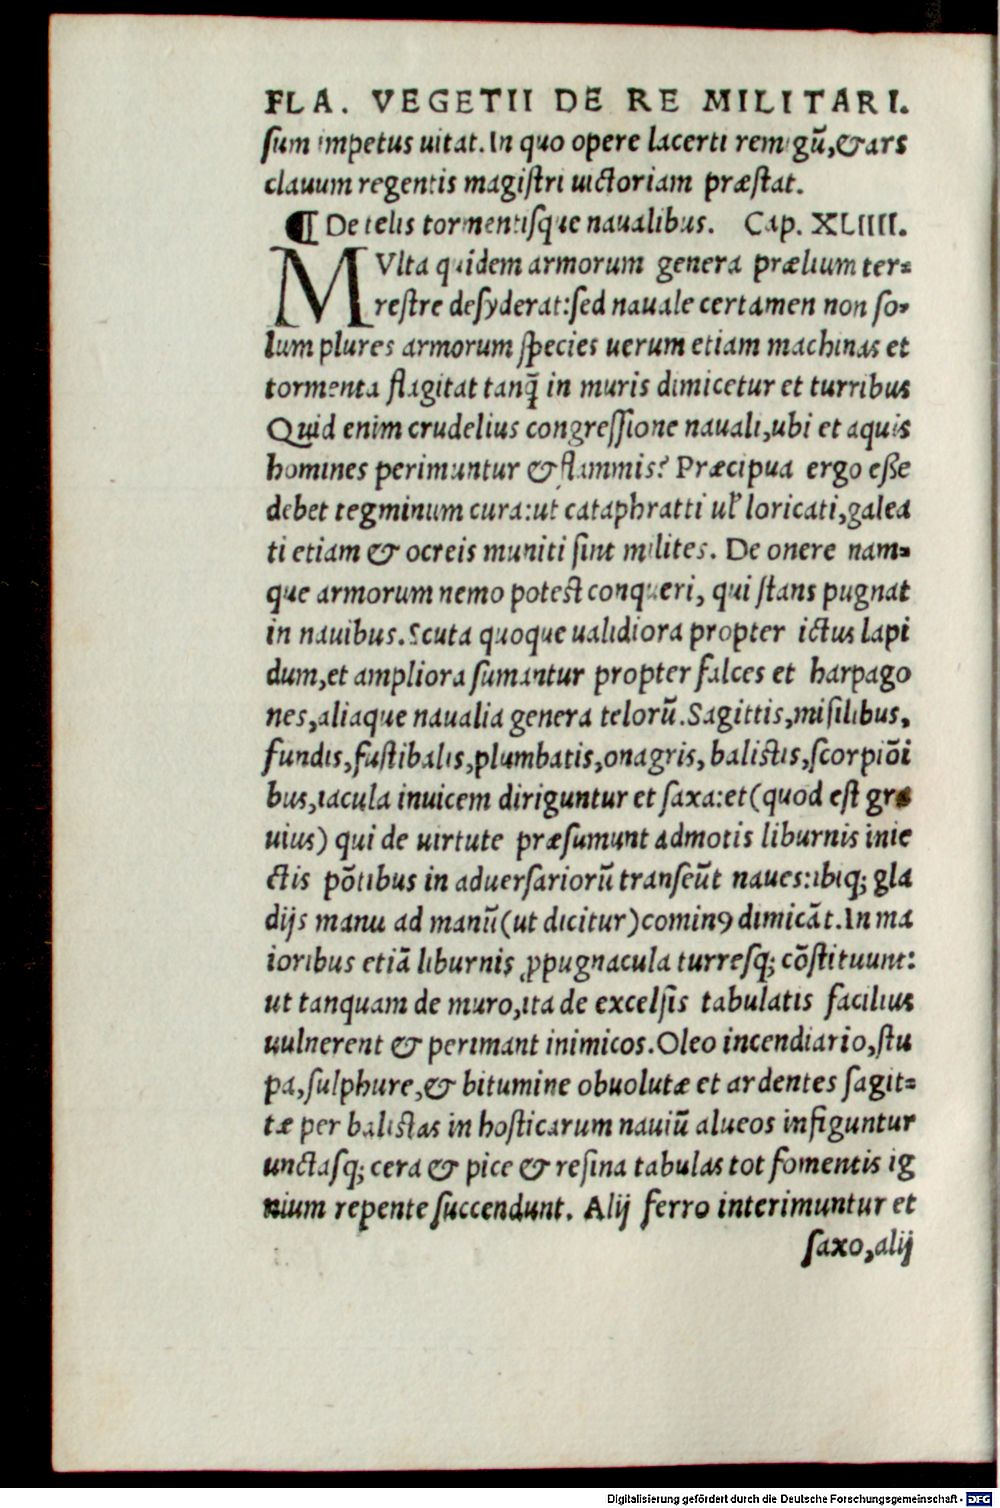 FLA. VEGETII DE RE MILITARI.
ſum impetus uitat. In quo opere lacerti remigũ,&ars
clauum regentis magiſtri uictoriam præſtat.
¶ De telis tormentiſque naualibus. Cap. XLIIII.
MVlta quidem armorum genera prælium ter-
reſtre deſyderat:ſed nauale certamen non ſo-
lum plures armorum ſpecies uerum etiam machinas et
tormenta flagitat tanq̃ in muris dimicetur et turribus
Quid enim crudelius congreſſione nauali,ubi et aquis
homines perimuntur & flammis? Præcipua ergo eſſe
debet tegminum cura:ut cataphratti ul̕ loricati,galea
ti etiam & ocreis muniti ſint milites. De onere nam-
que armorum nemo poteſt conqueri, qui ſtans pugnat
in nauibus. Scuta quoque ualidiora propter ictus lapi
dum,et ampliora ſumantur propter falces et harpago
nes,aliaque naualia genera telorũ. Sagittis,miſilibus,
fundis,fuſtibalis,plumbatis,onagris,baliſtis,ſcorpiõi
bus,iacula inuicem diriguntur et ſaxa:et(quod eſt gra
uius) qui de uirtute præſumunt admotis liburnis inie
ctis põtibus in aduerſariorũ tranſeũt naues:ibiq; gla
dijs manu ad manũ(ut dicitur)cominꝰ dimicãt. In ma
ioribus etiã liburnis ꝓpugnacula turreſq; cõſtituunt:
ut tanquam de muro,ita de excelſis tabulatis facilius
uulnerent & perimant inimicos. Oleo incendiario,ſtu
pa,ſulphure,& bitumine obuolutæ et ardentes ſagit-
tæ per baliſtas in hoſticarum nauiũ alueos infiguntur
unctaſq; cera & pice & reſina tabulas tot fomentis ig
nium repente ſuccendunt. Alij ferro interimuntur et
ſaxo,alij
Digitalisierung gefördert durch die Deutsche Forschungsgemeinschaft - DFG